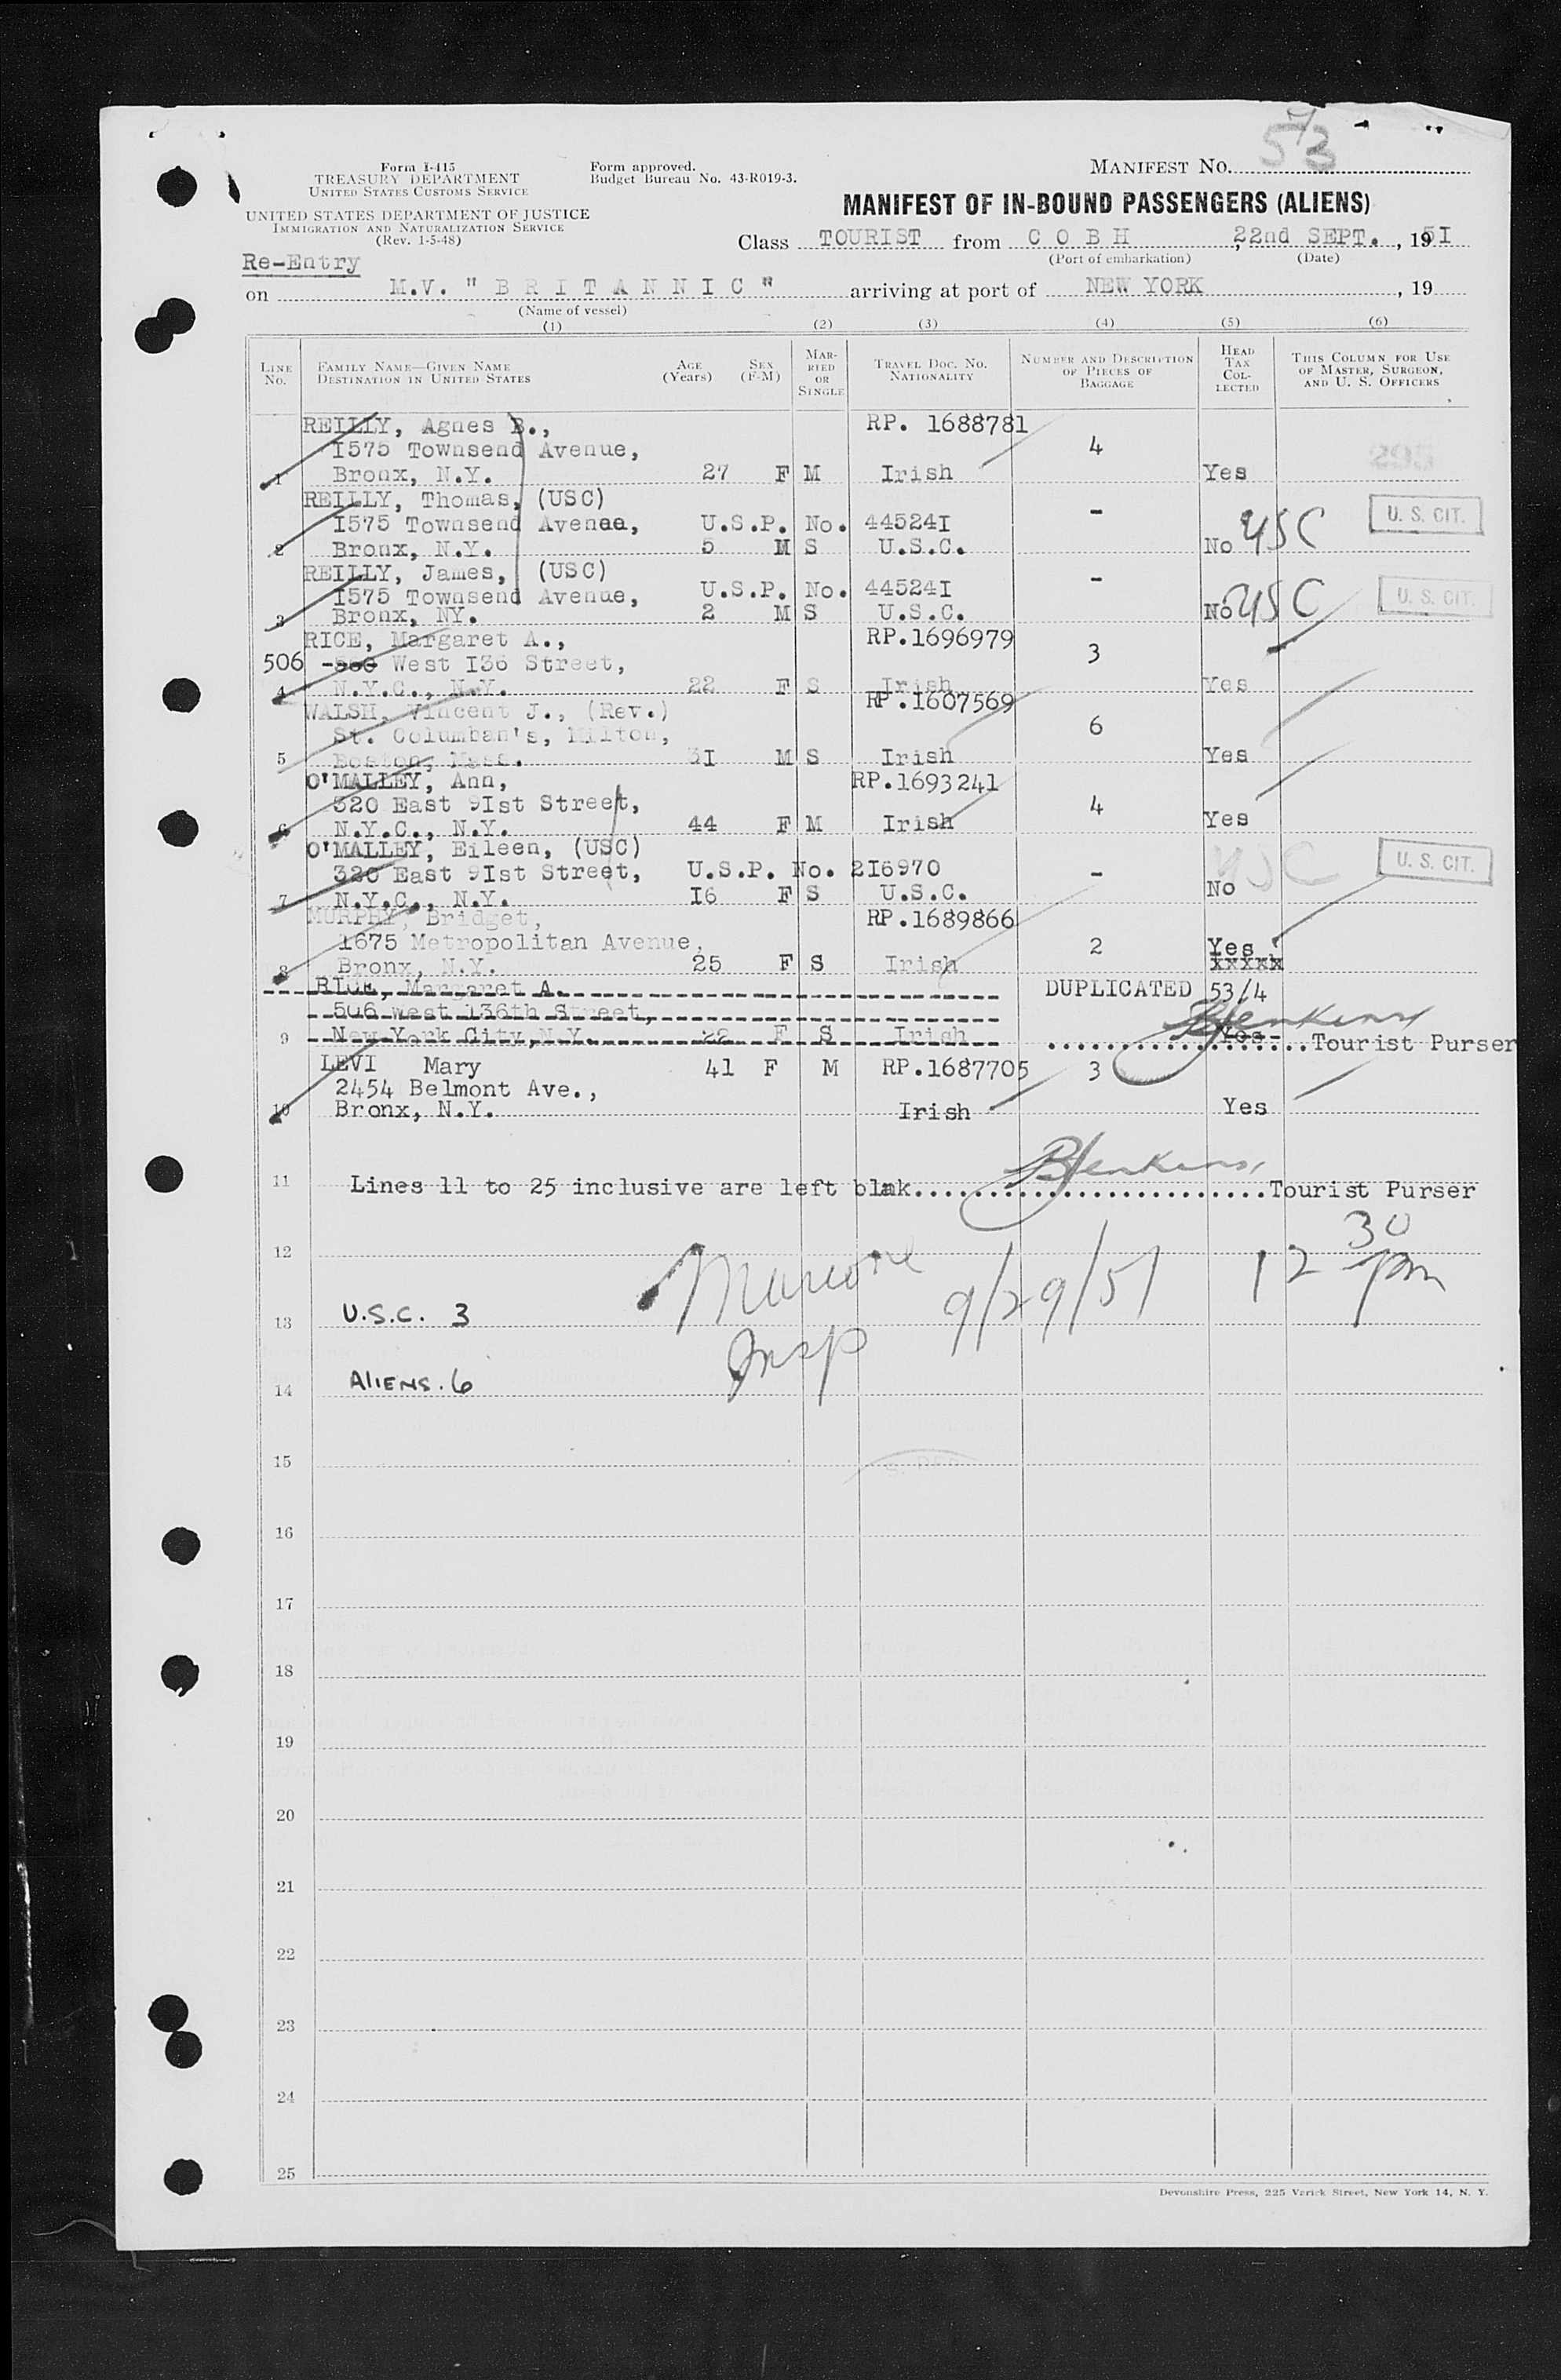 Form I-415
TREASURY DEPARTMENT
UNITED STATES CUSTOMS SERVICE
UNITED STATES DEPARTMENT OF JUSTICE
IMMIGRATION AND NATURALIZATION SERVICE
(Rev. 1-5-48)
Form approved.
Budget Bureau No. 43-R019-3.
MANIFEST NO. 53
MANIFEST OF IN-BOUND PASSENGERS (ALIENS)
Class TOURIST from C O B H, 22nd SEPT., 1951
(Port of embarkation) (Date)
Re-Entry
on M.V. "B R I T A N N I C" arriving at port of NEW YORK, 19
(Name of vessel)
(1) (2) (3) (4) (5) (6)
LINE NO. FAMILY NAME—GIVEN NAME DESTINATION IN UNITED STATES AGE (Years) SEX (F-M) MARRIED OR SINGLE TRAVEL DOC. NO. NATIONALITY NUMBER AND DESCRIPTION OF PIECES OF BAGGAGE HEAD TAX COLLECTED THIS COLUMN FOR USE OF MASTER, SURGEON, AND U. S. OFFICERS
REILLY, Agnes B., RP. 1688781
1575 Townsend Avenue, 4
1 Bronx, N.Y. 27 F M Irish Yes
REILLY, Thomas, (USC) -
1575 Townsend Avenue, U.S.P. No. 44524I USC U. S. CIT.
2 Bronx, N.Y. 5 M S U.S.C. No
REILLY, James, (USC) -
1575 Townsend Avenue, U.S.P. No. 44524I USC U. S. CIT.
3 Bronx, NY. 2 M S U.S.C. No
RICE, Margaret A., RP.1696979
506 West I36 Street, 3
4 N.Y.C., N.Y. 22 F S Irish Yes
WALSH, Vincent J., (Rev.) RP.1607569
St. Columban's, Milton, 6
5 Boston, Mass. 3I M S Irish Yes
O'MALLEY, Ann, RP.1693241
320 East 9Ist Street, 4
6 N.Y.C., N.Y. 44 F M Irish Yes
O'MALLEY, Eileen, (USC) USC U. S. CIT.
320 East 9Ist Street, U.S.P. No. 2I6970 -
7 N.Y.C., N.Y. I6 F S U.S.C. No
MURPHY, Bridget, RP.1689866
1675 Metropolitan Avenue, 2 Yes
8 Bronx, N.Y. 25 F S Irish xxxxx
RICE, Margaret A. DUPLICATED 53/4
506 West 136th Street, BJenkins
9 New York City, N.Y. 22 F S Irish Yes Tourist Purser
LEVI Mary 41 F M RP.1687705 3
2454 Belmont Ave.,
10 Bronx, N.Y. Irish Yes
BJenkins
11 Lines 11 to 25 inclusive are left blnk. Tourist Purser
12 9/29/51 12 30 pm
13 U.S.C. 3 Insp
14 ALIENS. 6
15
16
17
18
19
20
21
22
23
24
25
Devonshire Press, 225 Varick Street, New York 14, N. Y.